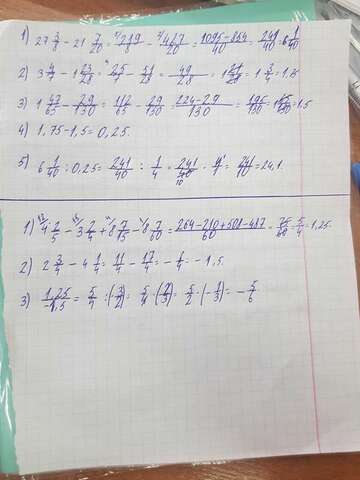 1) 27 3/8 − 21 7/20 = 219/8 − 427/20 = 1095−854/40 = 241/40 = 6 1/40
2) 3 4/7 − 1 23/28 = 25/7 − 51/28 = 49/28 = 1 21/28 = 1 3/4 = 1,75
3) 1 47/65 − 29/130 = 112/65 − 29/130 = 224−29/130 = 195/130 = 1 65/130 = 1.5
4) 1,75−1,5=0,25.
5) 6 1/40 : 0,25 = 241/40 : 1/4 = 241/40 · 4/1 = 241/10 = 24,1.
1) 4 2/5 − 3 2/4 + 8 7/15 − 8 7/60 = 264−210+508−487/60 = 75/60 = 5/4 = 1,25.
2) 2 3/4 − 4 1/4 = 11/4 − 17/4 = − 6/4 = − 1,5.
3) 1,25/−1,5 = 5/4 : (− 3/2) = 5/4 · (− 2/3) = 5/2 · (− 1/3) = − 5/6